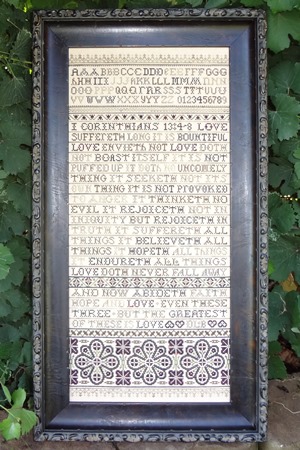 AAABBBCCCDDDEEEFFFGGG
OOOPPP
VVVWWWXXXYYYZZZ0123456789
I CORINTHIANS 13:4-8 LOVE
SUFFERETH LONG IT IS BOUNTIFUL
LOVE ENVIETH NOT LOVE DOTH
NOT BOAST ITSELF IT IS NOT
PUFFED UP IT DOTH NO UNCOMELY
THING IT SEEKETH NOT
OWN THING IT IS NOT PROVOKED
TO ANGER IT THINKETH NO
EVIL IT REJOICETH NOT IN
INIQUITY BUT REJOICETH IN
TRUTH IT SUFFERETH ALL
THINGS IT BELIEVETH ALL
THINGS IT HOPETH ALL THINGS
ENDURETH ALL THINGS
LOVE DOTH NEVER FALL AWAY
AND NOW ABIDETH FAITH
HOPE AND LOVE·EVEN THESE
THREE·BUT THE GREATEST
OF THESE IS LOVE